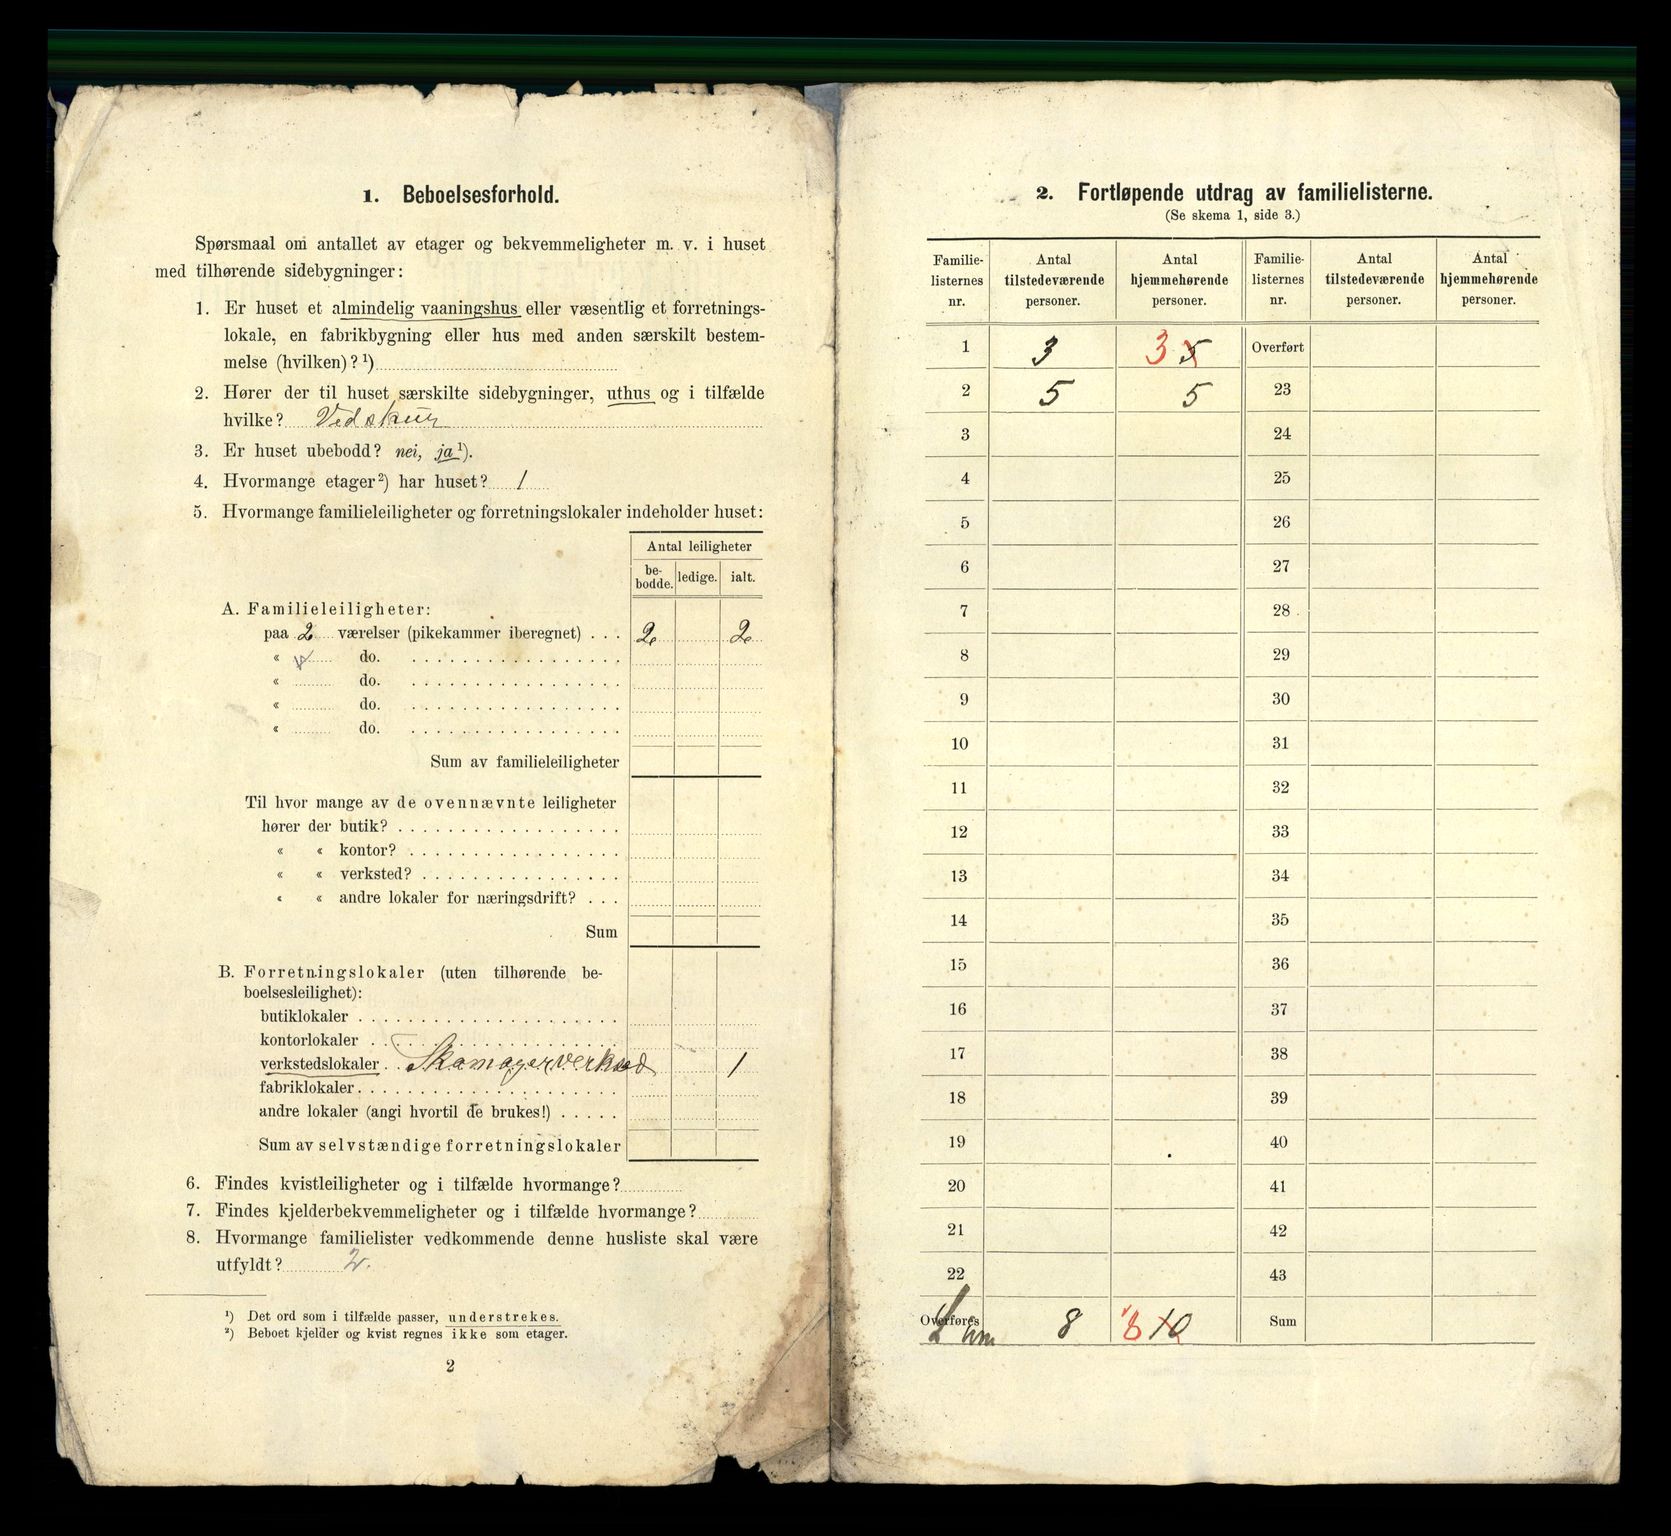 1. Beboelsesforhold.
Spørsmaal om antallet av etager og bekvemmeligheter m. v. i huset
med tilhørende sidebygninger:
1. Er huset et almindelig vaaningshus eller væsentlig et forretnings-
lokale, en fabrikbygning eller hus med anden særskilt bestem-
melse (hvilken)? ¹)
2. Hører der til huset særskilte sidebygninger, uthus og i tilfælde
hvilke? Vedskur
3. Er huset ubebodd? nei, ja ¹).
4. Hvormange etager ²) har huset? 1
5. Hvormange familieleiligheter og forretningslokaler indeholder huset:
Antal leiligheter
be-
bodde. ledige. ialt.
A. Familieleiligheter:
paa 2 værelser (pikekammer iberegnet) . . . 2 2
« do.
« do.
« do.
« do.
Sum av familieleiligheter
Til hvor mange av de ovennævnte leiligheter
hører der butik?
« « kontor?
« « verksted?
« « andre lokaler for næringsdrift?
Sum
B. Forretningslokaler (uten tilhørende be-
boelsesleilighet):
butiklokaler
kontorlokaler
verkstedslokaler . . Skomagerverksed 1
fabriklokaler
andre lokaler (angi hvortil de brukes!)
Sum av selvstændige forretningslokaler
6. Findes kvistleiligheter og i tilfælde hvormange?
7. Findes kjelderbekvemmeligheter og i tilfælde hvormange?
8. Hvormange familielister vedkommende denne husliste skal være
utfyldt? 2.
¹) Det ord som i tilfælde passer, understrekes.
²) Beboet kjelder og kvist regnes ikke som etager.
2
2. Fortløpende utdrag av familielisterne.
(Se skema 1, side 3.)
Familie- Antal Antal Familie- Antal Antal
listernes tilstedeværende hjemmehørende listernes tilstedeværende hjemmehørende
nr. personer. personer. nr. personer. personer.
1 3 3 5 Overført
2 5 5 23
3 24
4 25
5 26
6 27
7 28
8 29
9 30
10 31
11 32
12 33
13 34
14 35
15 36
16 37
17 38
18 39
19 40
20 41
21 42
22 43
Overføres Sum 8 8 10 Sum